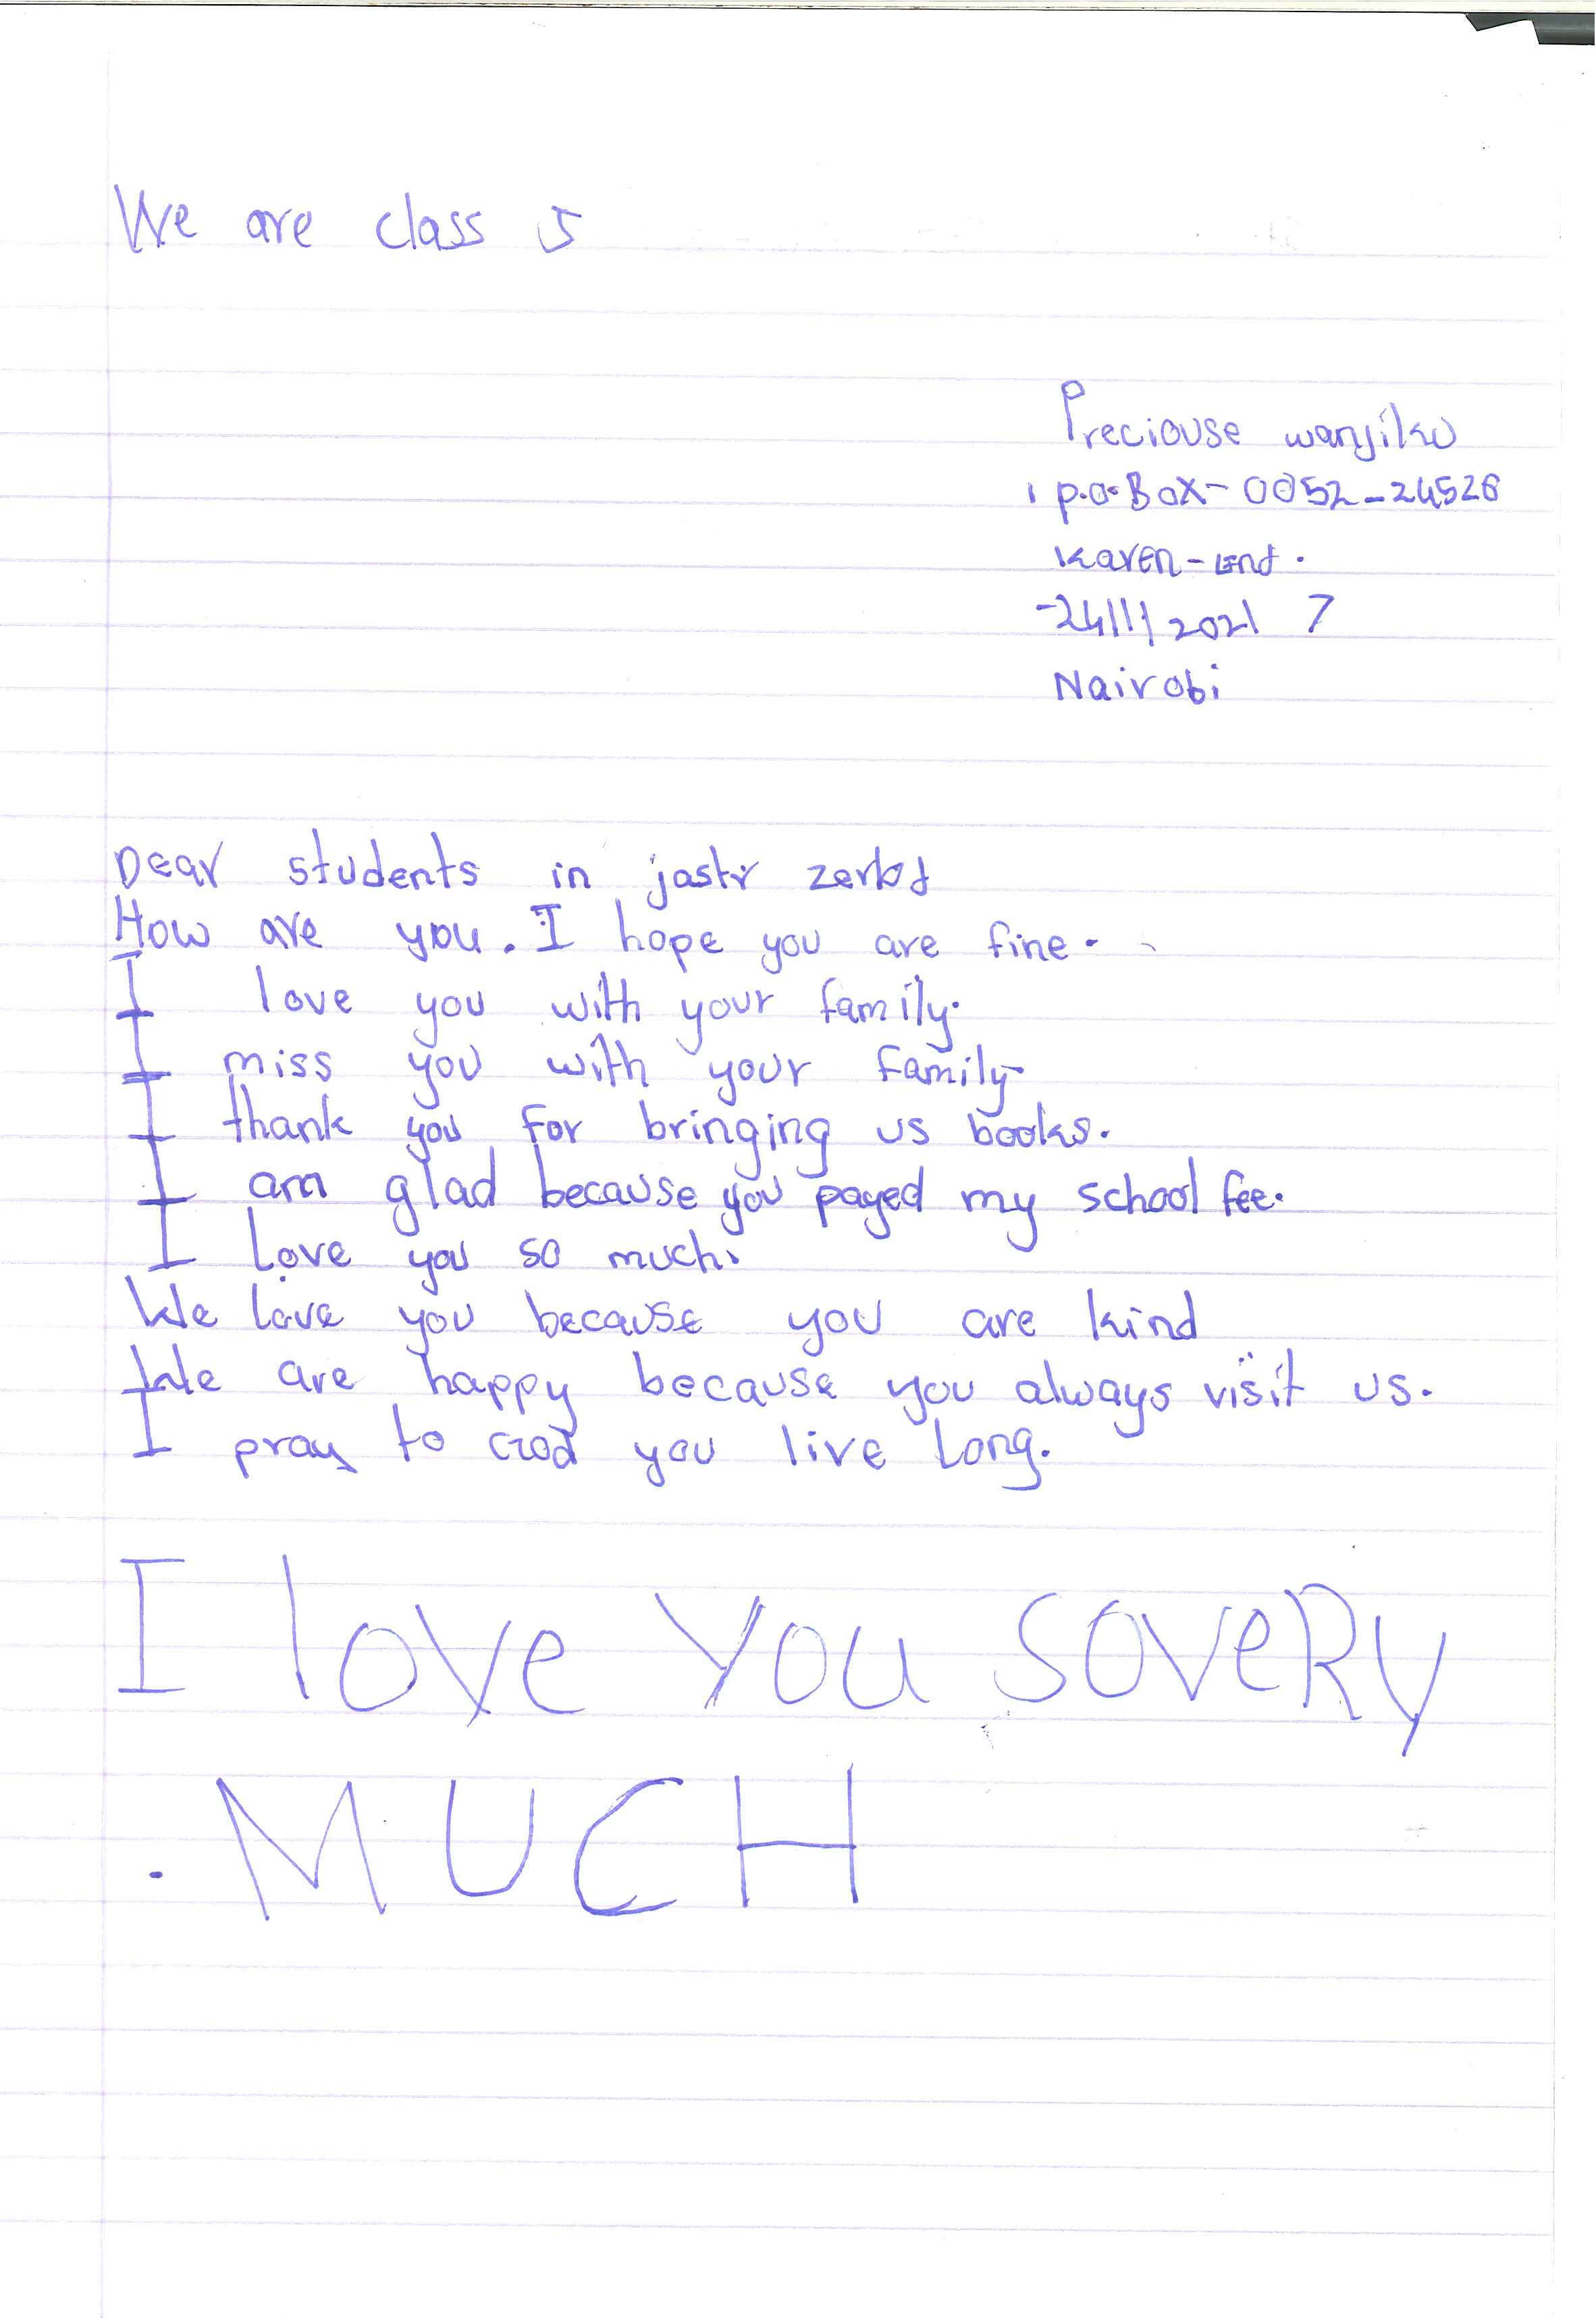 We are class 5
Preciouse wanjiku
p.o. Box - 0052 - 24526
Karen -
24/11/2021 7
Nairobi
Dear students in jastr
How are you. I hope you are fine.
I love you with your family.
I miss you with your family
I thank you for bringing us books.
I am glad because you payed my school fee.
I Love you so much.
We love you because you are kind
We are happy because you always visit us.
I pray to God you live Long.
I love you SOVERY
. MUCH